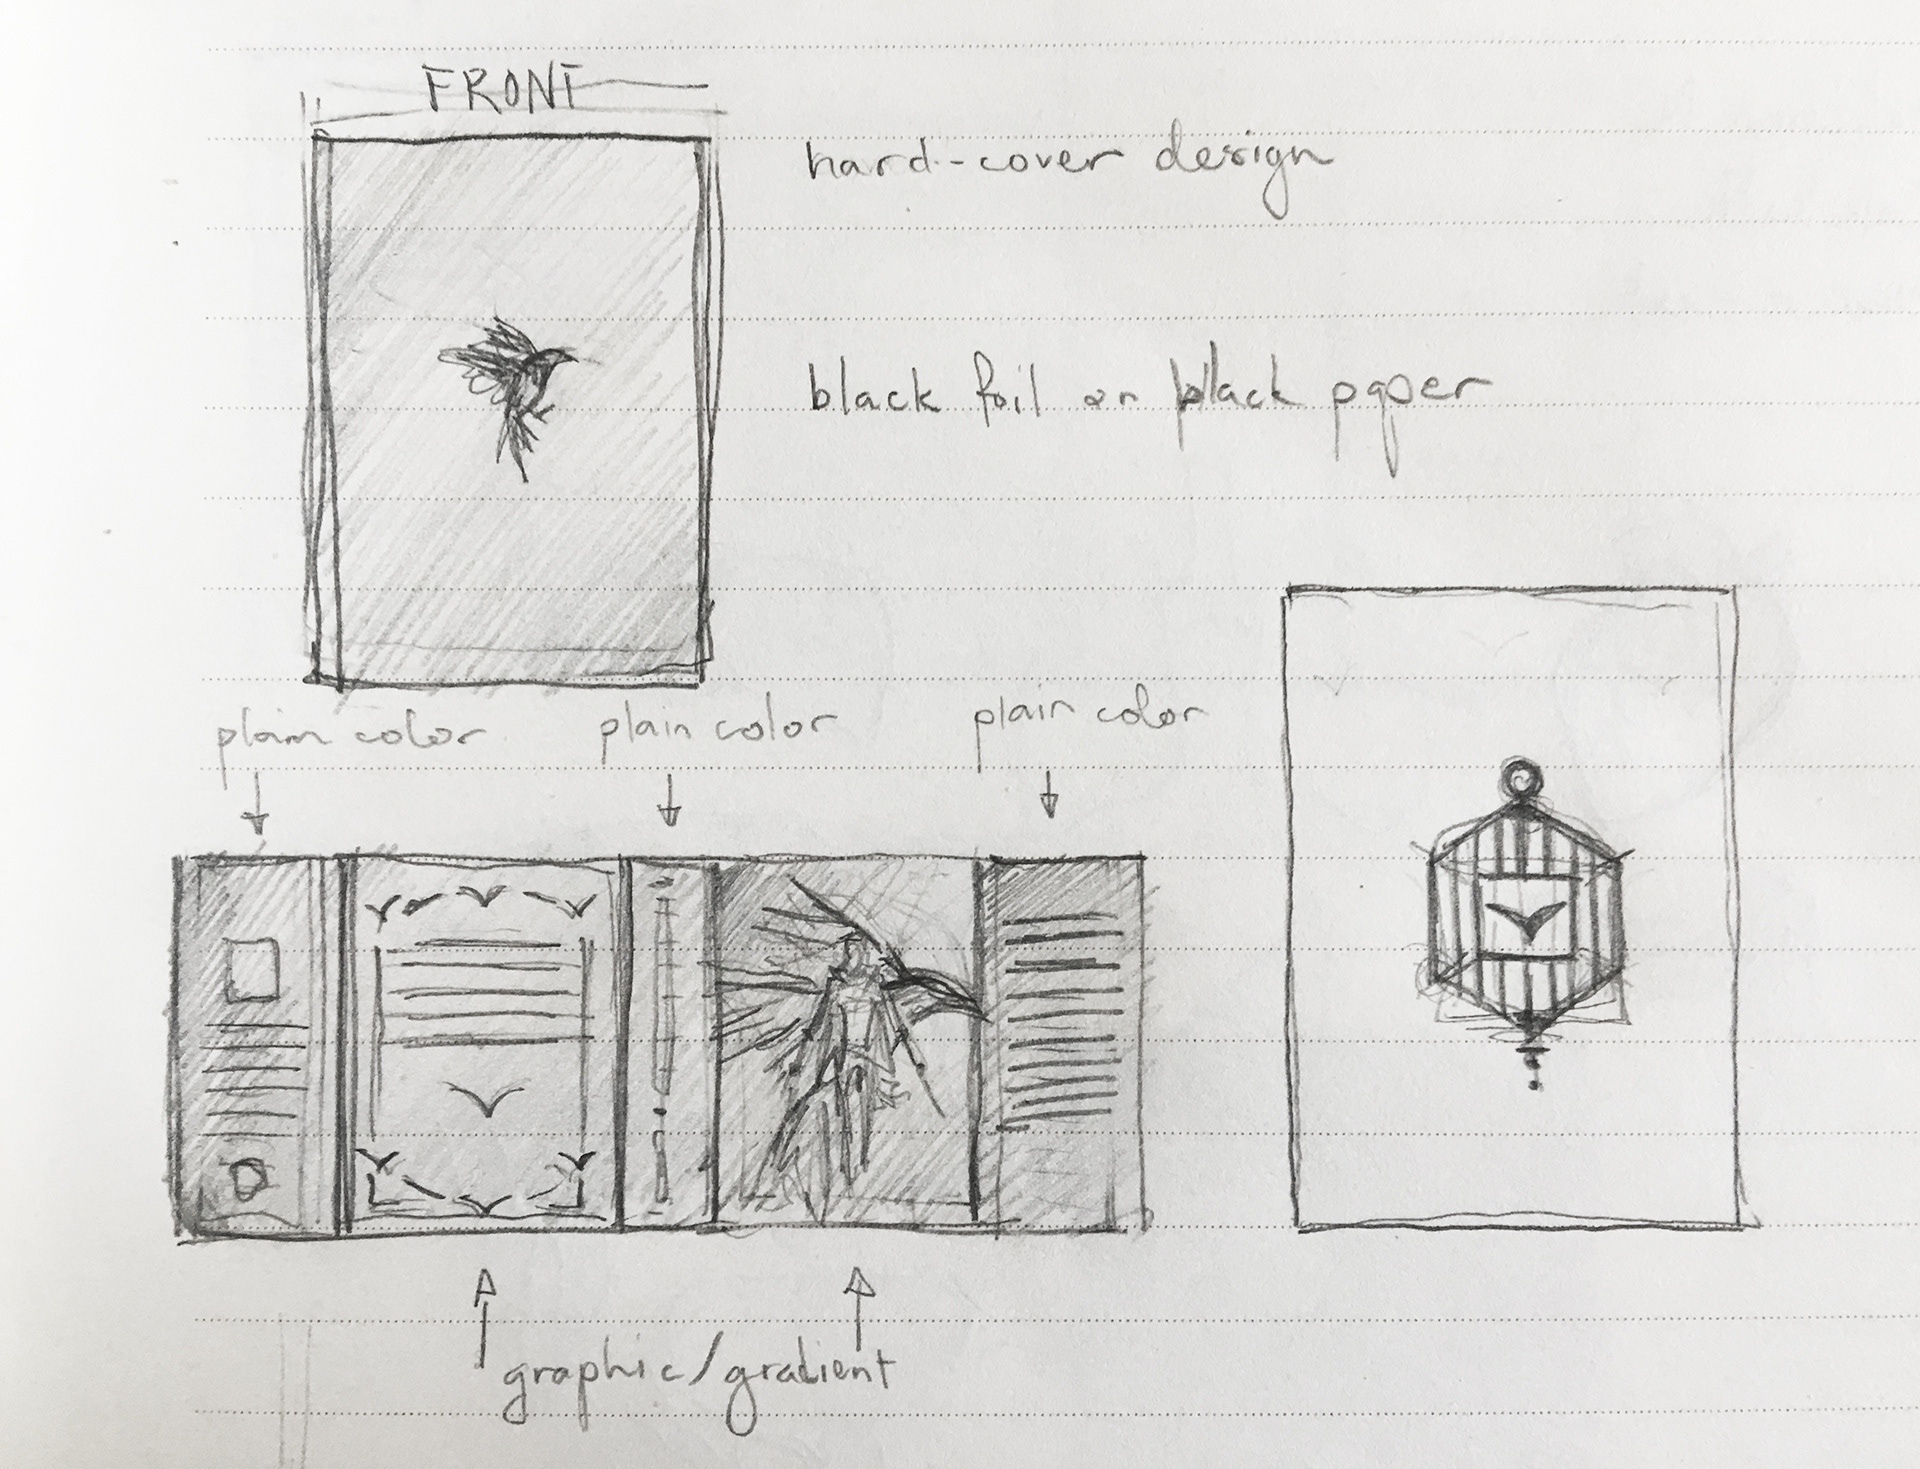 FRONT
hard-cover design
black foil on black paper
plain color
plain color
plain color
graphic/gradient